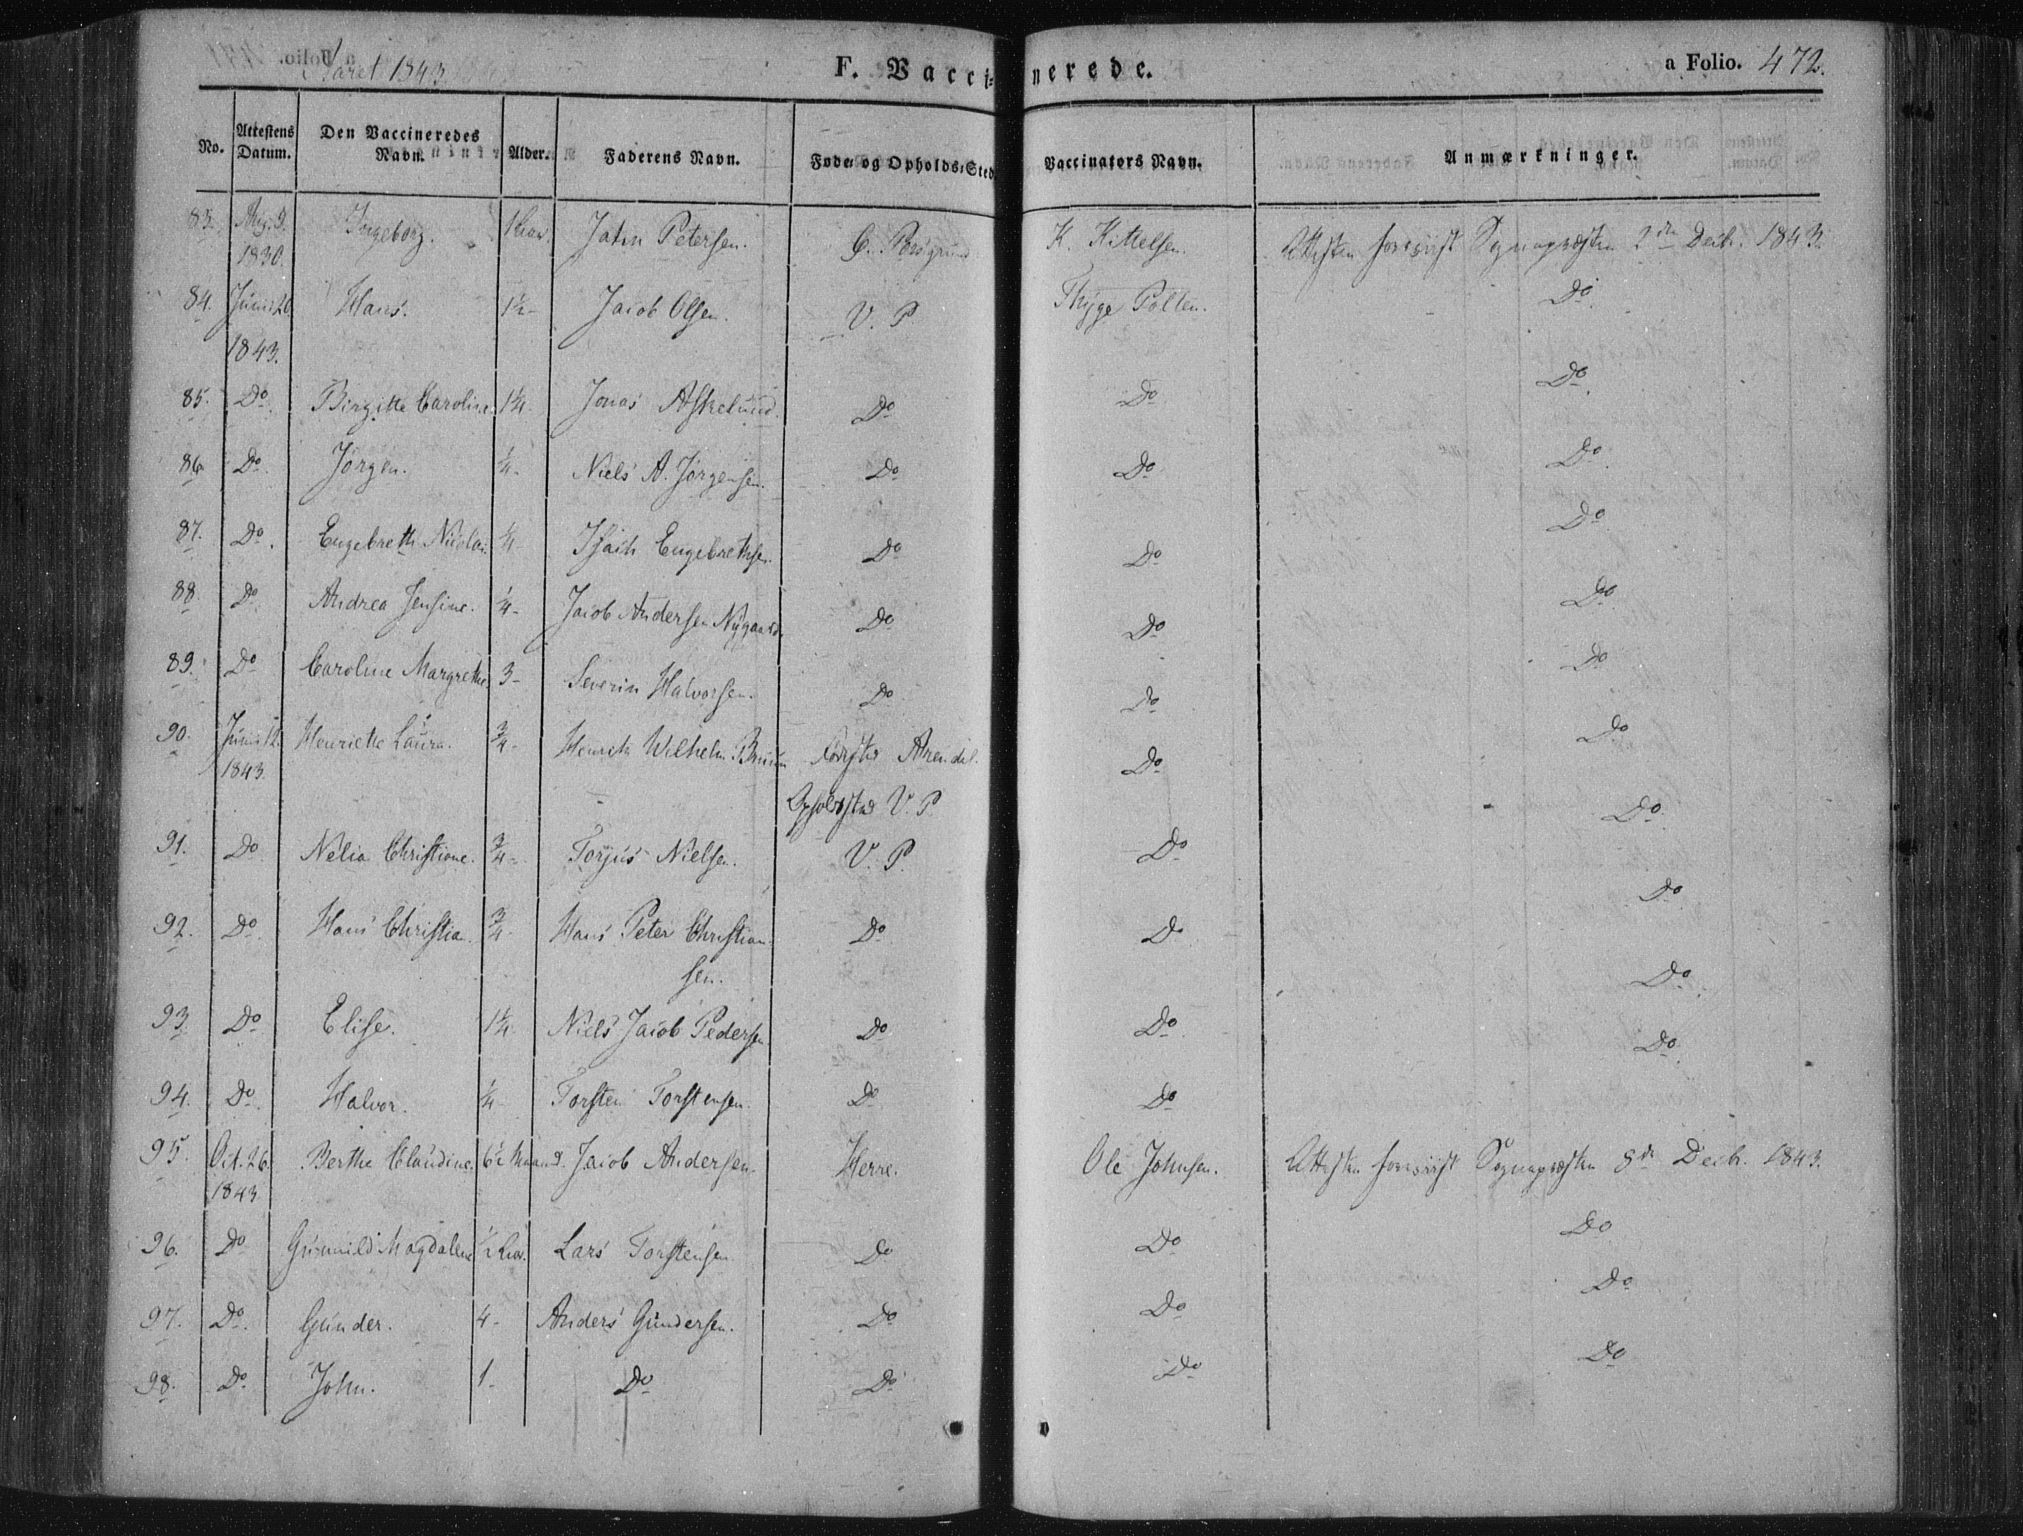 Aaret 1843.
F. Vaccinerede.
a Folio. 472.
No. Attestens Datum. Den Vaccineredes Navn. Alder. Faderens Navn. Føde- og Opholds-Sted Vaccinators Navn. Anmærkninger.
83. Aug. 9. 1830. Ingeborg. 1 Aar. John Petersen. Porsgrund K. Kittelsen. Attesten foreviist Sognepræsten Decbr. 1843.
84. Junii 26 1843. Hans. 1½- Jacob Olsen. V. P. Thyge Polten. Do
85. Do. Birgitte Caroline. 1¼. Jonas Askelund. Do Do Do
86. Do. Jørgen. ¼- Niels A. Jørgensen. Do Do Do.
87. Do. Engebreth Nicolai. ¼- Isach Engebrethsen. Do Do Do
88. Do. Andrea Jensine. ¼- Jacob Andersen Nygaard. Do Do Do
89. Do Caroline Margrethe. 3- Severin Halvorsen. Do Do Do
90. Junii 12. 1843. Henriette Laura. ¾- Henrik Wilhelm Bruun Fødested Arendal. Do Do
Opholdsted V. P.
91. Do Nelia Christiane. ¾- Torjus Nielsen. V. P. Do Do.
92. Do. Hans Christian. ¾- Hans Peter Christian- Do Do Do.
sen.
93. Do Elise. 1¼. Niels Jacob Pedersen Do Do Do.
94. Do. Halvor. ¼- Torsten Torstensen. Do Do Do.
95. Oct. 26. 1843. Berthe Claudine. 6½ Maaned. Jacob Andersen. Herre. Ole Johnsen. Attesten foreviist Sognepræsten 8de Decbr. 1843.
96. Do Gunnild Magdalene ½ Aar. Lars Torstensen Do Do Do
97. Do. Gunder. 4- Anders Gundersen. Do Do Do
98. Do. John. 1- Do Do Do Do